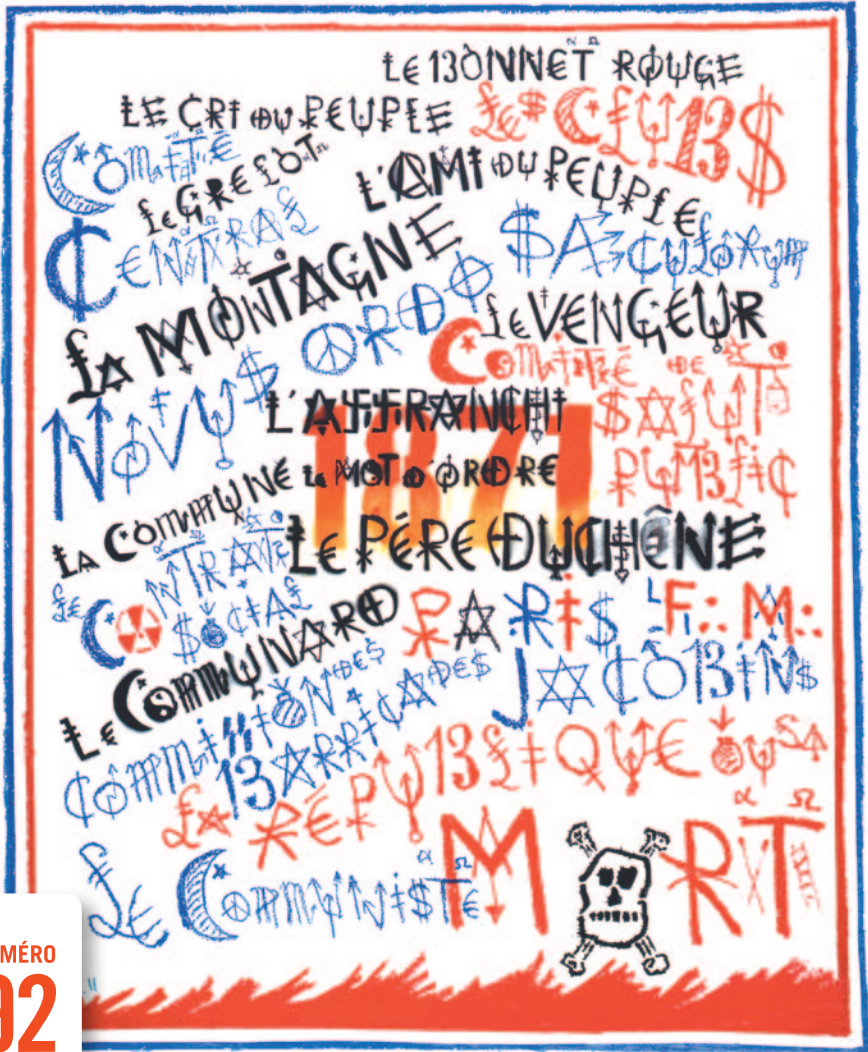 LE BONNET ROUGE
LE CRI DU PEUPLE
LES CLUBS
COMITÉ
LE GRELOT
L'AMI DU PEUPLE
CENTRAL
SÆCULORUM
LA MONTAGNE
NOVUS ORDO
LE VENGEUR
COMITÉ DE
SALUT
PUBLIC
L'AFFRANCHI
1871
LA COMMUNE
LE MOT D'ORDRE
LE PÈRE DUCHÊNE
LE CONTRAT
SOCIAL
PARIS
F∴ M∴
LE COMMUNARD
JACOBINS
COMMISSION DES
BARRICADES
LA RÉPUBLIQUE OU LA
MORT
LE COMMUNISTE
MÉRO
92